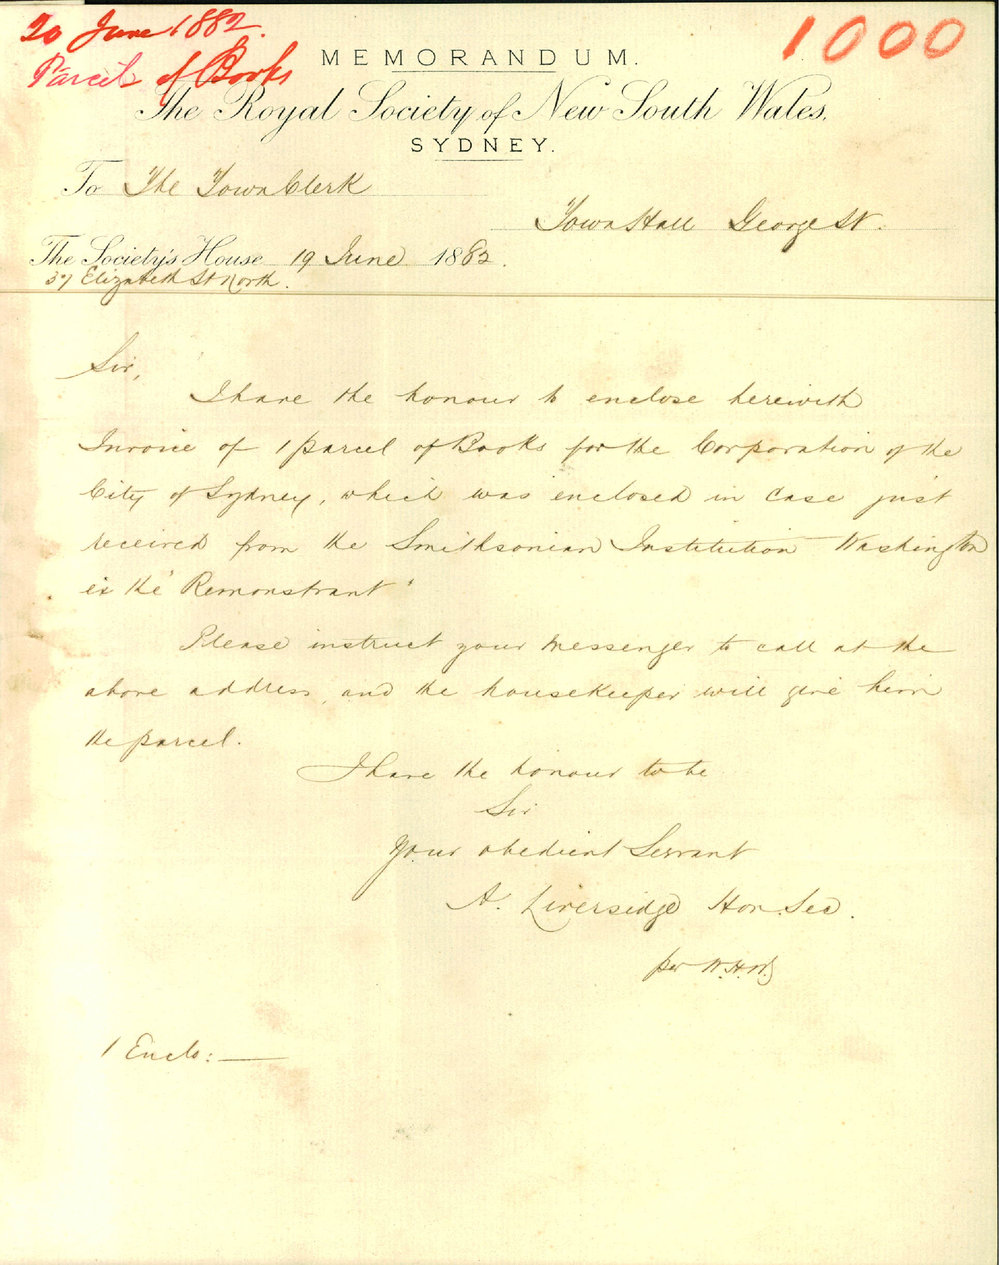 20 June 1882.
Parcel of Books
1000
MEMORANDUM.
The Royal Society of New South Wales,
SYDNEY.
To The Town Clerk
Town Hall George St.
The Society's House 19 June 1882.
37 Elizabeth St North.
Sir,
I have the honour to enclose herewith
Invoice of 1 parcel of Books for the Corporation of the
City of Sydney, which was enclosed in case just
received from the Smithsonian Institution Washington
ex the "Remonstrant"
Please instruct your messenger to call at the
above address, and the housekeeper will give him
the parcel.
I have the honour to be
Sir
Your obedient Servant
A. Liversidge Hon. Sec.
per W.H.W.
1 Enclo:—